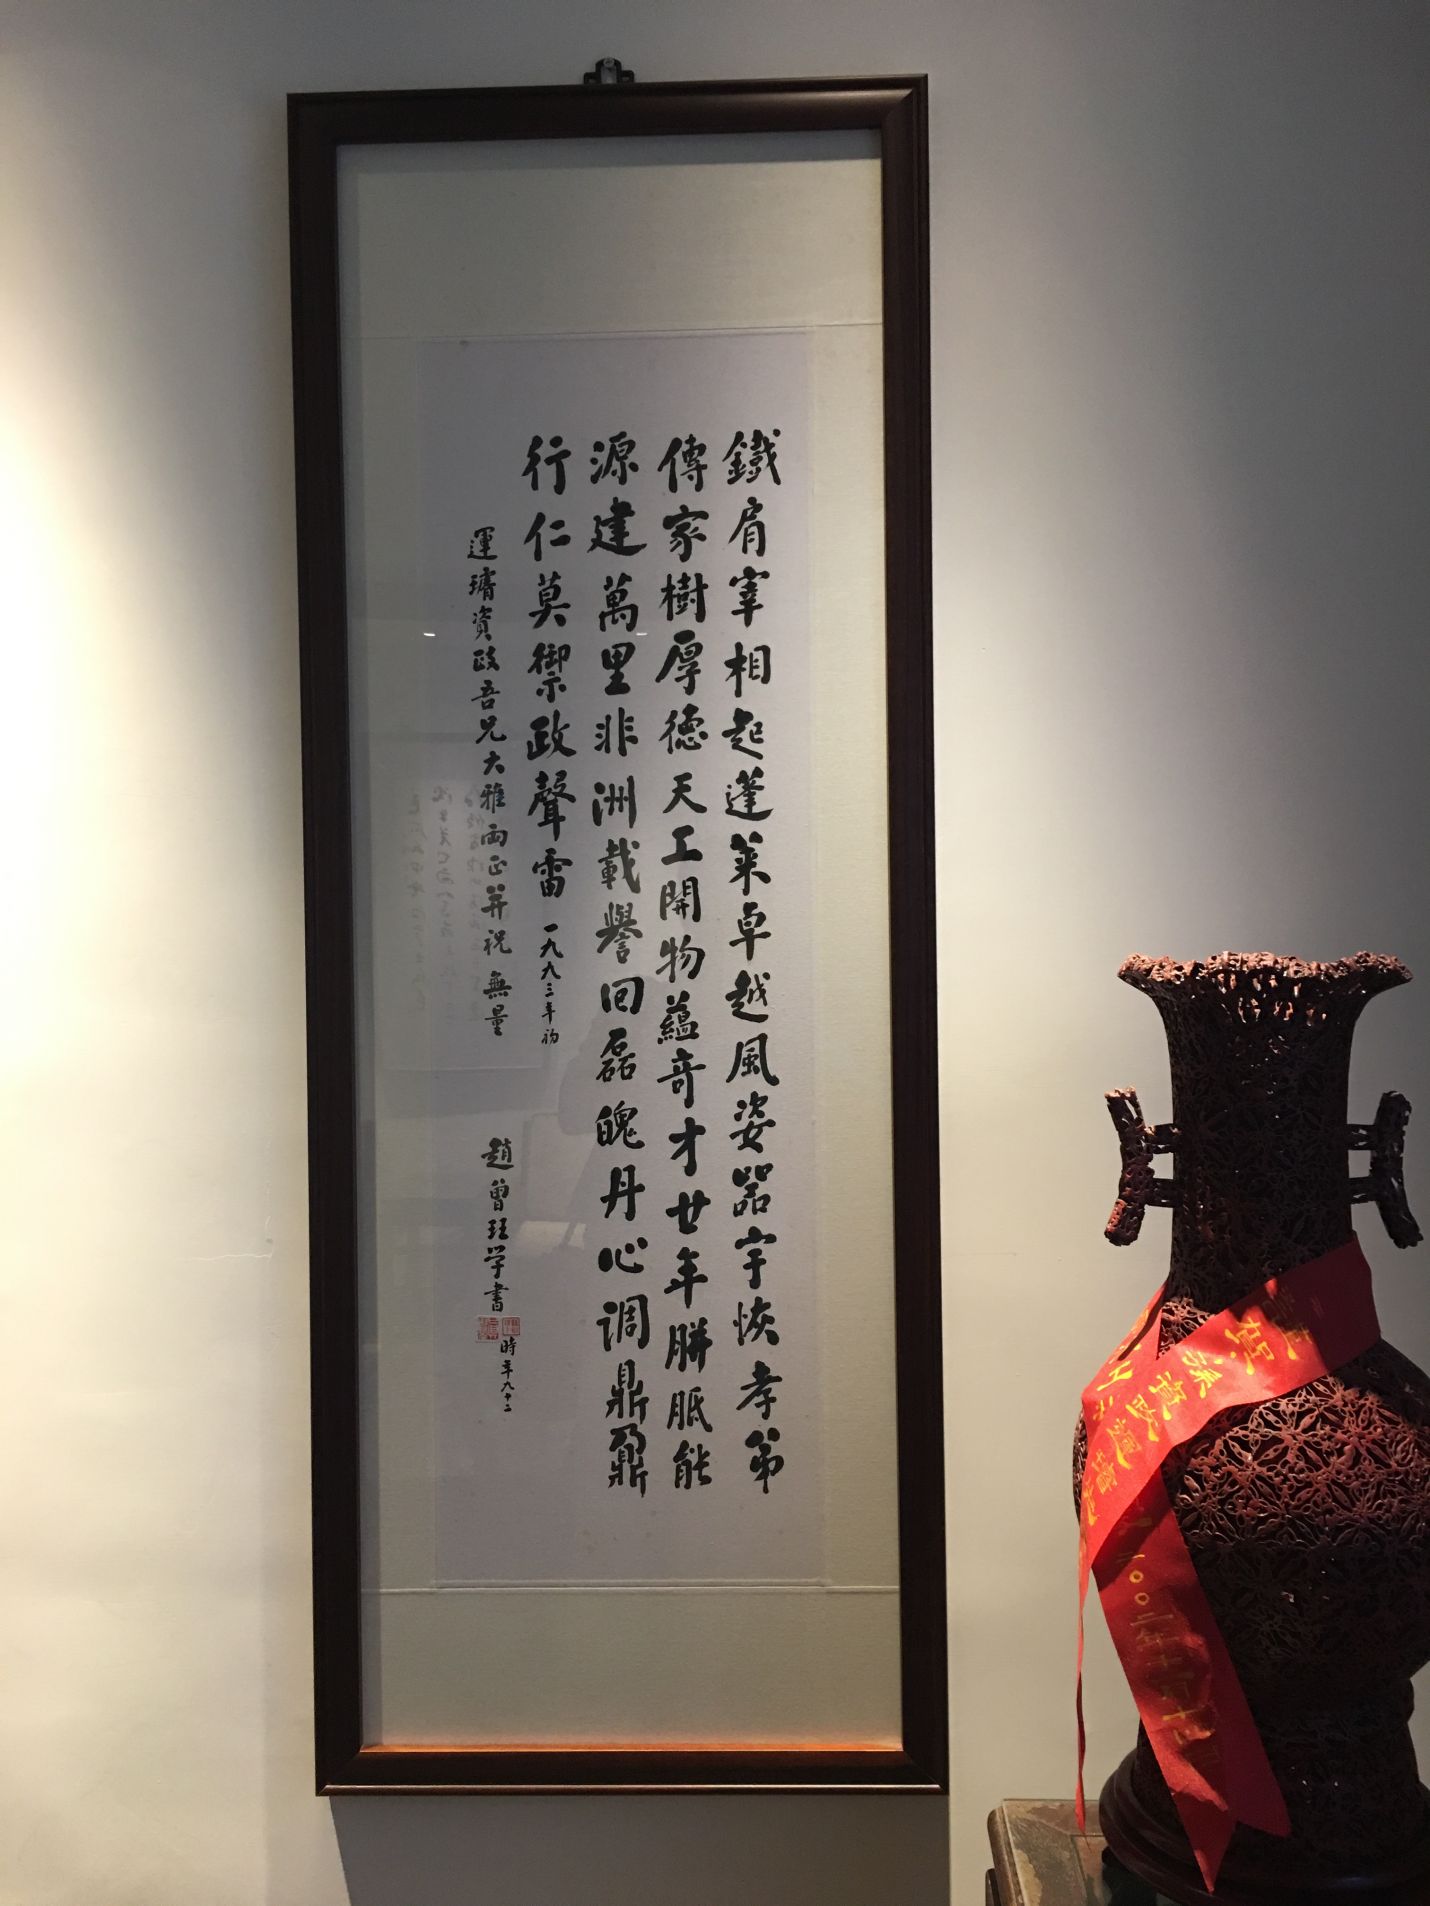 鐵肩宰相起蓬萊卓越風姿器宇恢孝弟
傳家樹厚德天工開物蘊奇才廿年胼胝能
源建萬里非洲載譽回磊磈丹心調鼎鼐
行仁莫禦政聲雷 一九九三年初
運璿資政吾兄大雅兩正並祝無量
趙曾珏学書
時年九十二
孫資政運璿
二〇〇二年十